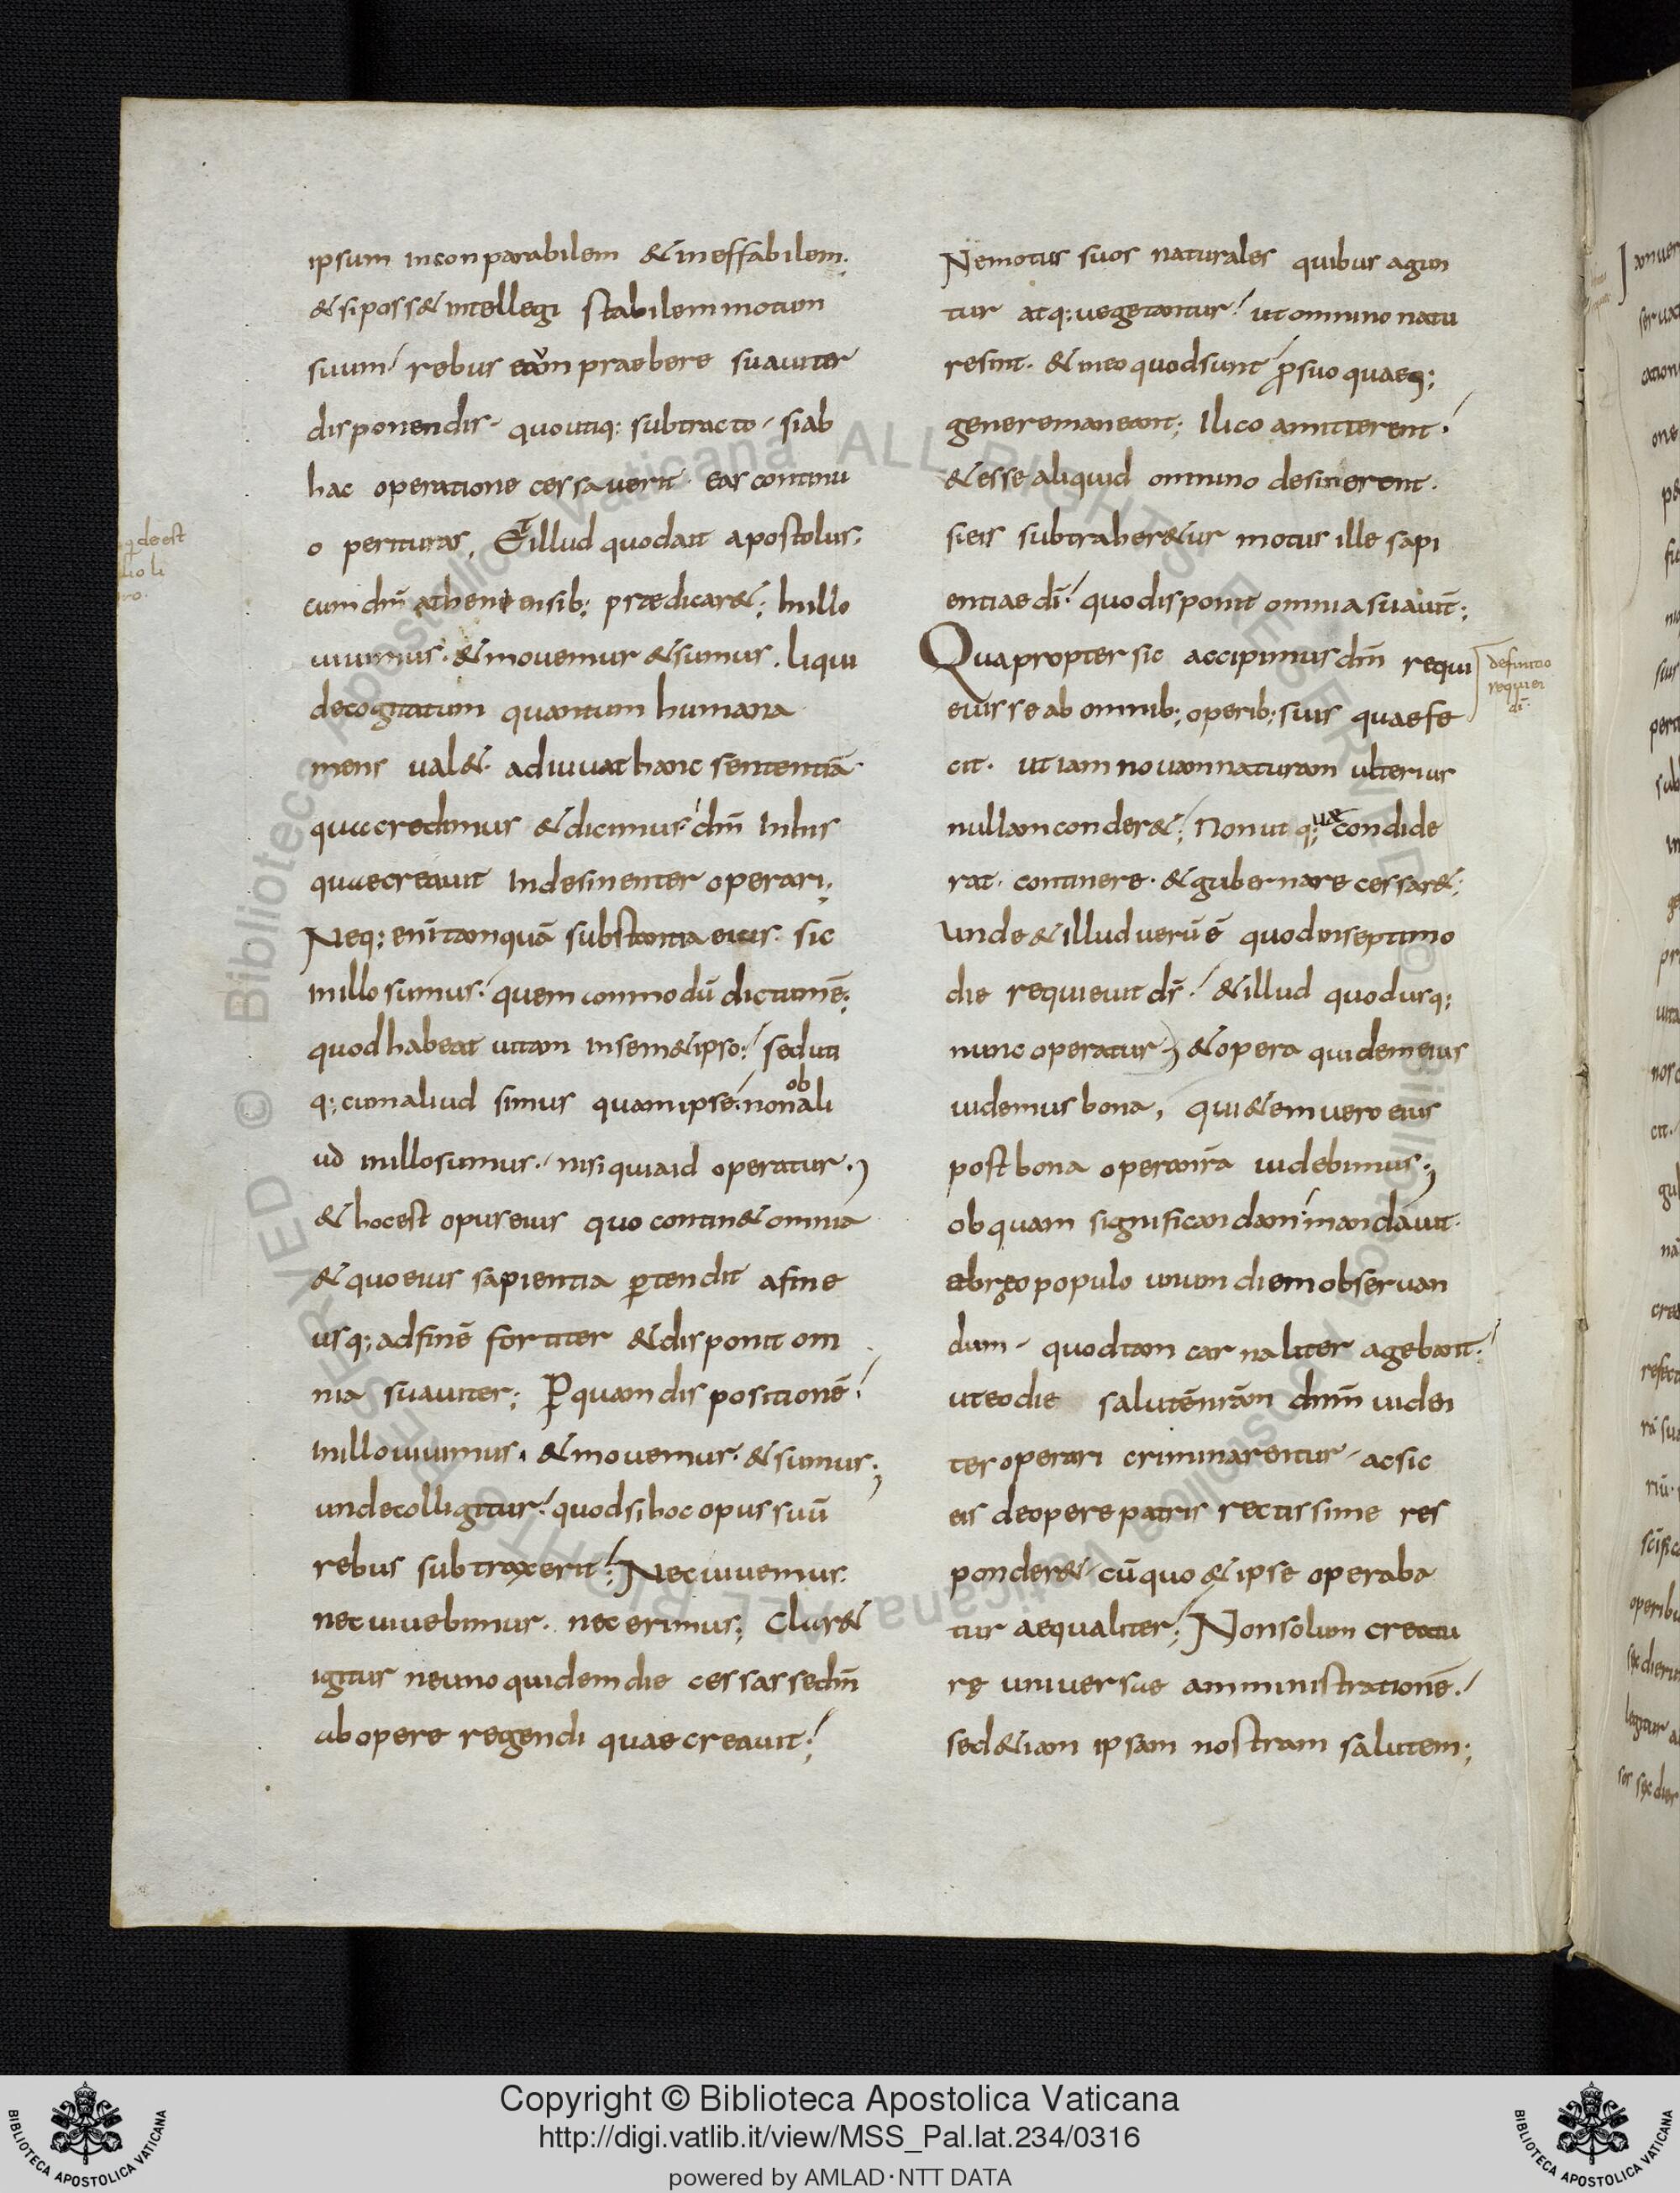 ipsum inconparabilem & ineffabilem;
& si poss& intellegi stabilem motum
suum rebus eum praebere suauiter
disponendis quo utiq: subtracto si ab
hac operatione cessauerit eas continu
o perituras. Et illud quod ait apostolus;
cum dm̄ atheniensib; praedicar&; In illo
uiuimus. & mouemur & sumus. liqui
de cogitatum quantum humana
mens ual& adiuuat hanc sententiā
qua credimus & dicimus dm̄ In his
quae creauit Indesinenter operari;
Neq; enī tamquā substantia eius sic
In illo sumus quem commodū dictum ē;
quod habeat uitam In sem&ipso; sed uti
q; cum aliud simus quam ipse non ob ali
ud In illo sumus nisi quia id operatur;
& hoc est opus eius quo contin& omnia
& quo eius sapientia p̱tendit a fine
usq; ad finē fortiter & disponit om
nia suauiter; P̱ quam dispositionē
In illo uiuimus. & mouemur. & sumus;
unde colligitur quod si hoc opus suū
rebus subtraxerit; Nec uiuemus
nec uiuebimus. nec erimus; Clar&
igitur ne uno quidem die cessasse dm̄
ab opere regendi quae creauit;
Ne motus suos naturales quibus agun
tur atq; uegetantur ut omnino natu
re sint. & in eo quod sunt p̱ suo quaeq;
genere maneant; Ilico amitterent
& esse aliquid omnino desinerent.
si eis subtraher&ur motus ille sapi
entiae dī quo disponit omnia suauit̄;
Quapropter sic accipimus dm̄ requi
euisse ab omnib; operib; suis quae fe
cit. ut iam nouam naturam ulterius
nullam conder&; Non ut quae condide
rat. continere. & gubernare cessar&;
Unde & illud uerū ē quod in septimo
die requieuit ds̄ & illud quod usq;
nunc operatur; & opera quidem eius
uidemus bona, qui&em uero eius
post bona opera nr̄a uidebimus;
ob quam significandam mandauit
ebręo populo unum diem obseruan
dum quod tam carnaliter agebant
ut eo die salutē nr̄am dnm̄ uiden
ter operari criminarentur ac sic
eis de opere patris rectissime res
ponder& cū quo & ipse operaba
tur aequaliter; Non solum creatu
rę uniuersae amministrationē
sed &iam ipsam nostram salutem;
definitio
requiei
dī
Copyright © Biblioteca Apostolica Vaticana
http://digi.vatlib.it/view/MSS_Pal.lat.234/0316
powered by AMLAD·NTT DATA
BIBLIOTECA APOSTOLICA VATICANA
BIBLIOTECA APOSTOLICA VATICANA